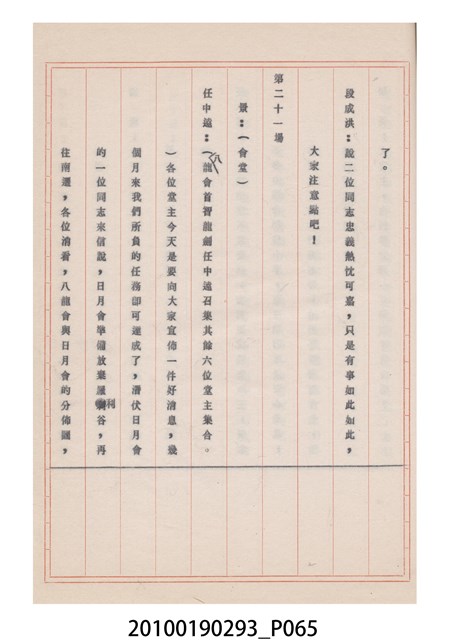 了。
段成洪:說二位同志忠義熱忱可嘉,只是有事如此如此,
大家注意點吧!
第二十一場
景:(會堂)
任中遠:(八龍會首智龍劍任中遠召集其餘六位堂主集合。
)各位堂主今天是要向大家宣佈一件好消息,幾
個月來我們所負的任務即可達成了,潛伏日月會
的一位同志來信說,日月會準備放棄 利谷,再
往南遷,各位請看,八龍會與日月會的分佈圖,
20100190293_P065